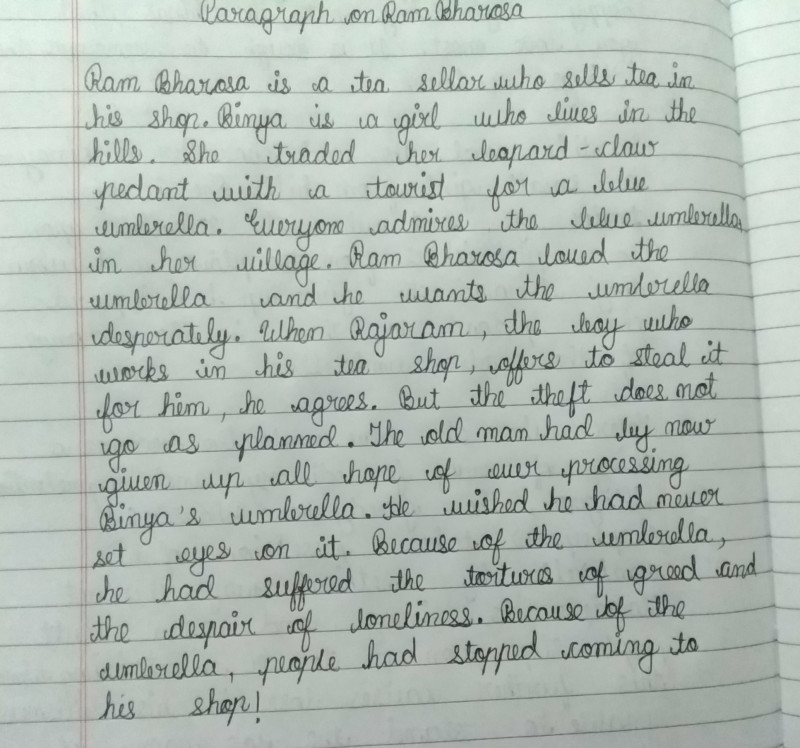 Paragraph on Ram Bharosa
Ram Bharosa is a tea sellar who sells tea in
his shop. Binya is a girl who lives in the
hills. She traded her leapard-claw
pedant with a tourist for a blue
umberella. Everyone admires the blue umberella
in her village. Ram Bharosa loved the
umberella and he wants the umberella
desperately. When Rajaram, the boy who
works in his tea shop, offers to steal it
for him, he agrees. But the theft does not
go as planned. The old man had by now
given up all hope of ever processing
Binya's umberella. He wished he had never
set eyes on it. Because of the umberella,
he had suffered the tortures of greed and
the despair of loneliness. Because of the
umberella, people had stopped coming to
his shop!